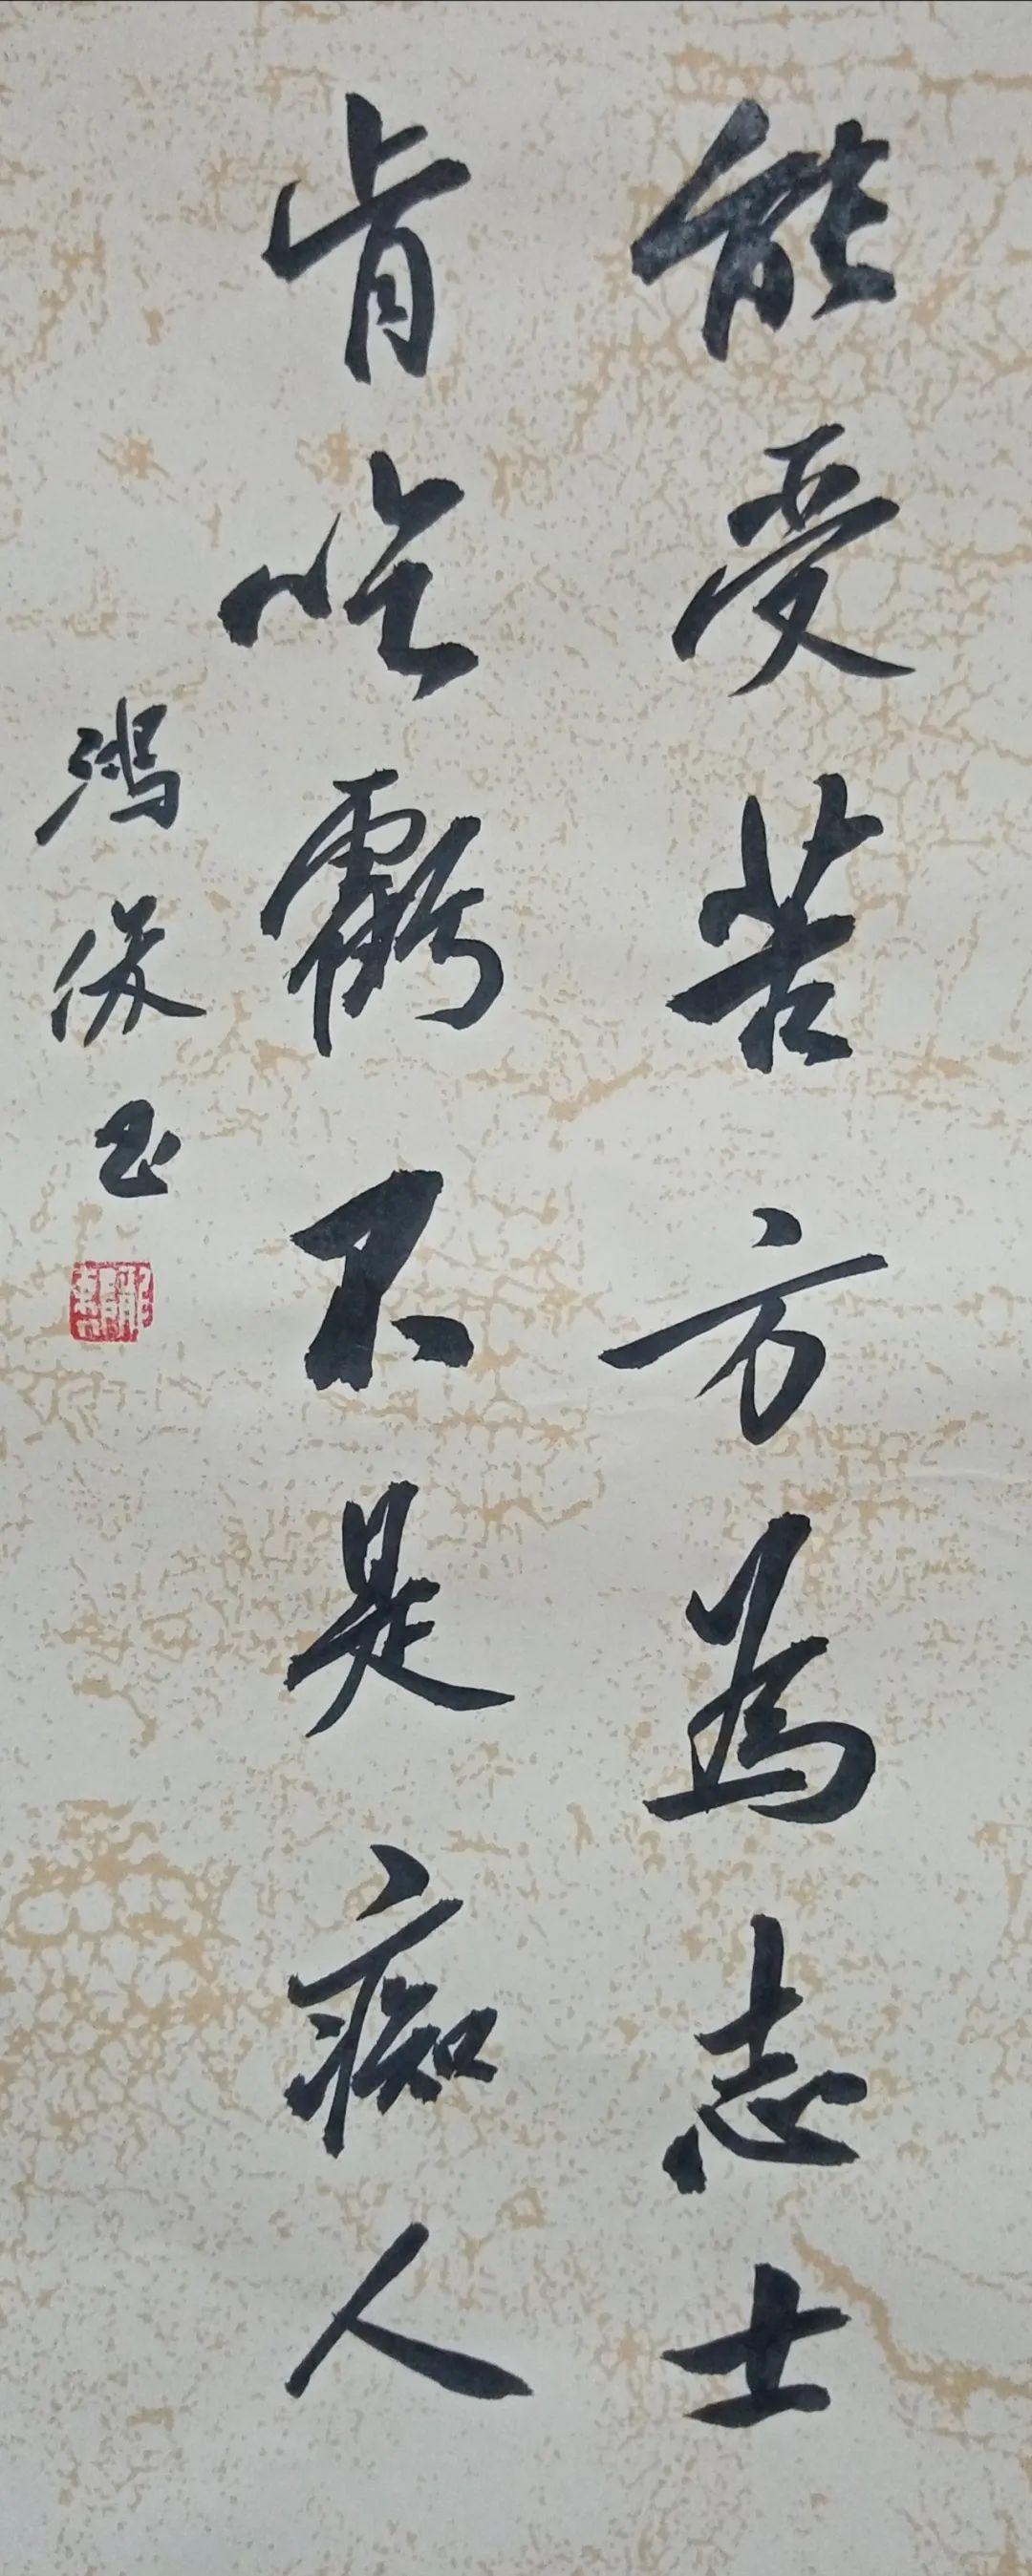 能受苦方為志士
肯吃虧不是痴人
鴻俊书